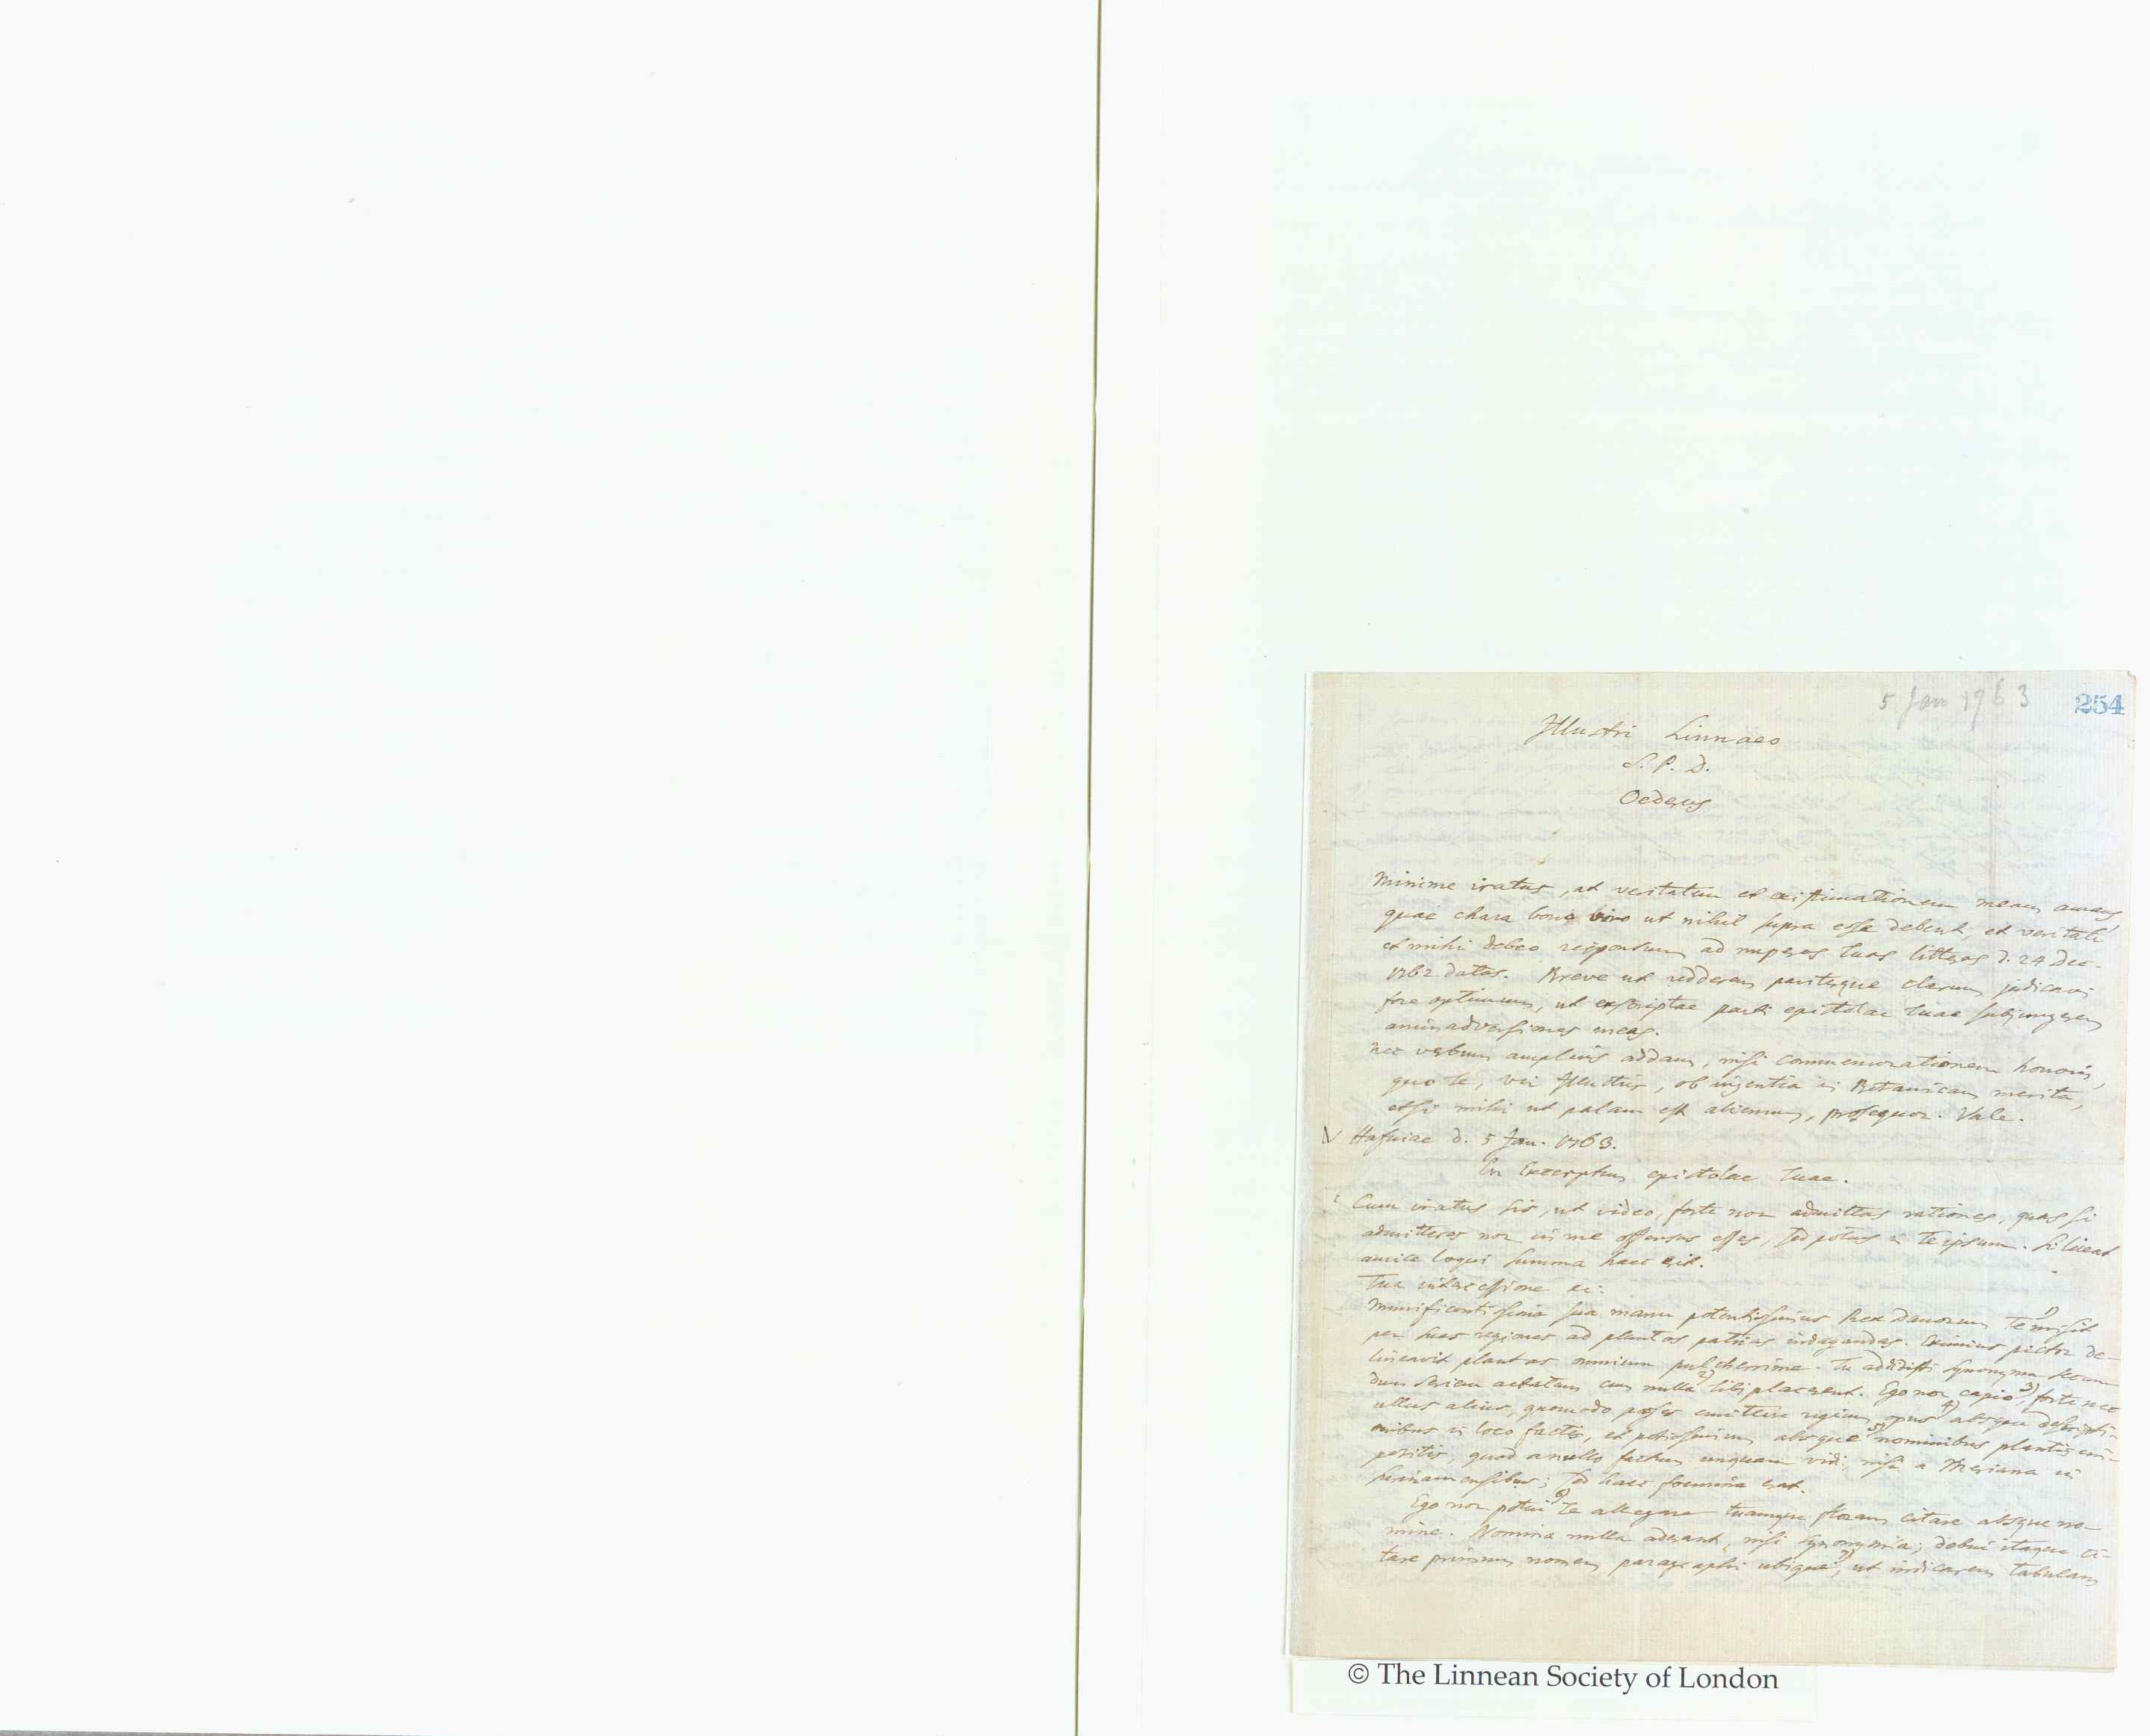 5 Jan 1763
254
Illustri Linnaeo
S. P. D.
Oederus
Minime iratus, at veritatem et existimationem meam amans,
quae chara bono viro ut nihil supra esse debent, et veritati
et mihi debeo responsum ad nuperas tuas litteras d. 24 Dec.
1762 datas. Breve ut redderem pariterque clarum judicavi
fore optimum, ut exscriptae parti epistolae tuae subjungerem
animadversiones meas.
Nec verbum amplius addam, nisi commemorationem honoris,
quo te, vir Illustris, ob ingentia in Botanicam merita,
etsi mihi ut palam est alienum, prosequor. Vale.
Hafniae d. 5 Jan. 1763.
En Excerptum epistolae tuae.
Cum iratus sis, ut video, forte non admittas rationes, quas si
admitteres non in me offensus esses, sed potius in Te ipsum. Si liceat
amice loqui summa haec erit.
Tua intercessione
Munificentissima sua manu potentissimus Rex Danorum Te 1) misit
per suas regiones ad plantas patrias indagandas. Eximius pictor de-
lineavit plantas omnium pulcherrime. Tu addidisti synonyma secun-
dum seriem aetatum cum nulla 2) tibi placerent. Ego non capio 3), forte nec
ullus alius, quomodo posses emittere regium opus 4) absque descripti-
onibus in loco factis, et potissimum absque 5) nominibus plantis im-
positis, quod a nullo factum unquam vidi, nisi a Meriana in
Surinamensibus; sed haec foemina erat.
Ego non potui 6) Te allegare tuamque floram citare absque no-
mine. Nomina nulla aderant, nisi synonymia; debui itaque ci-
tare primum nomen paragraphi ubique 7), ut indicarem tabulam
© The Linnean Society of London